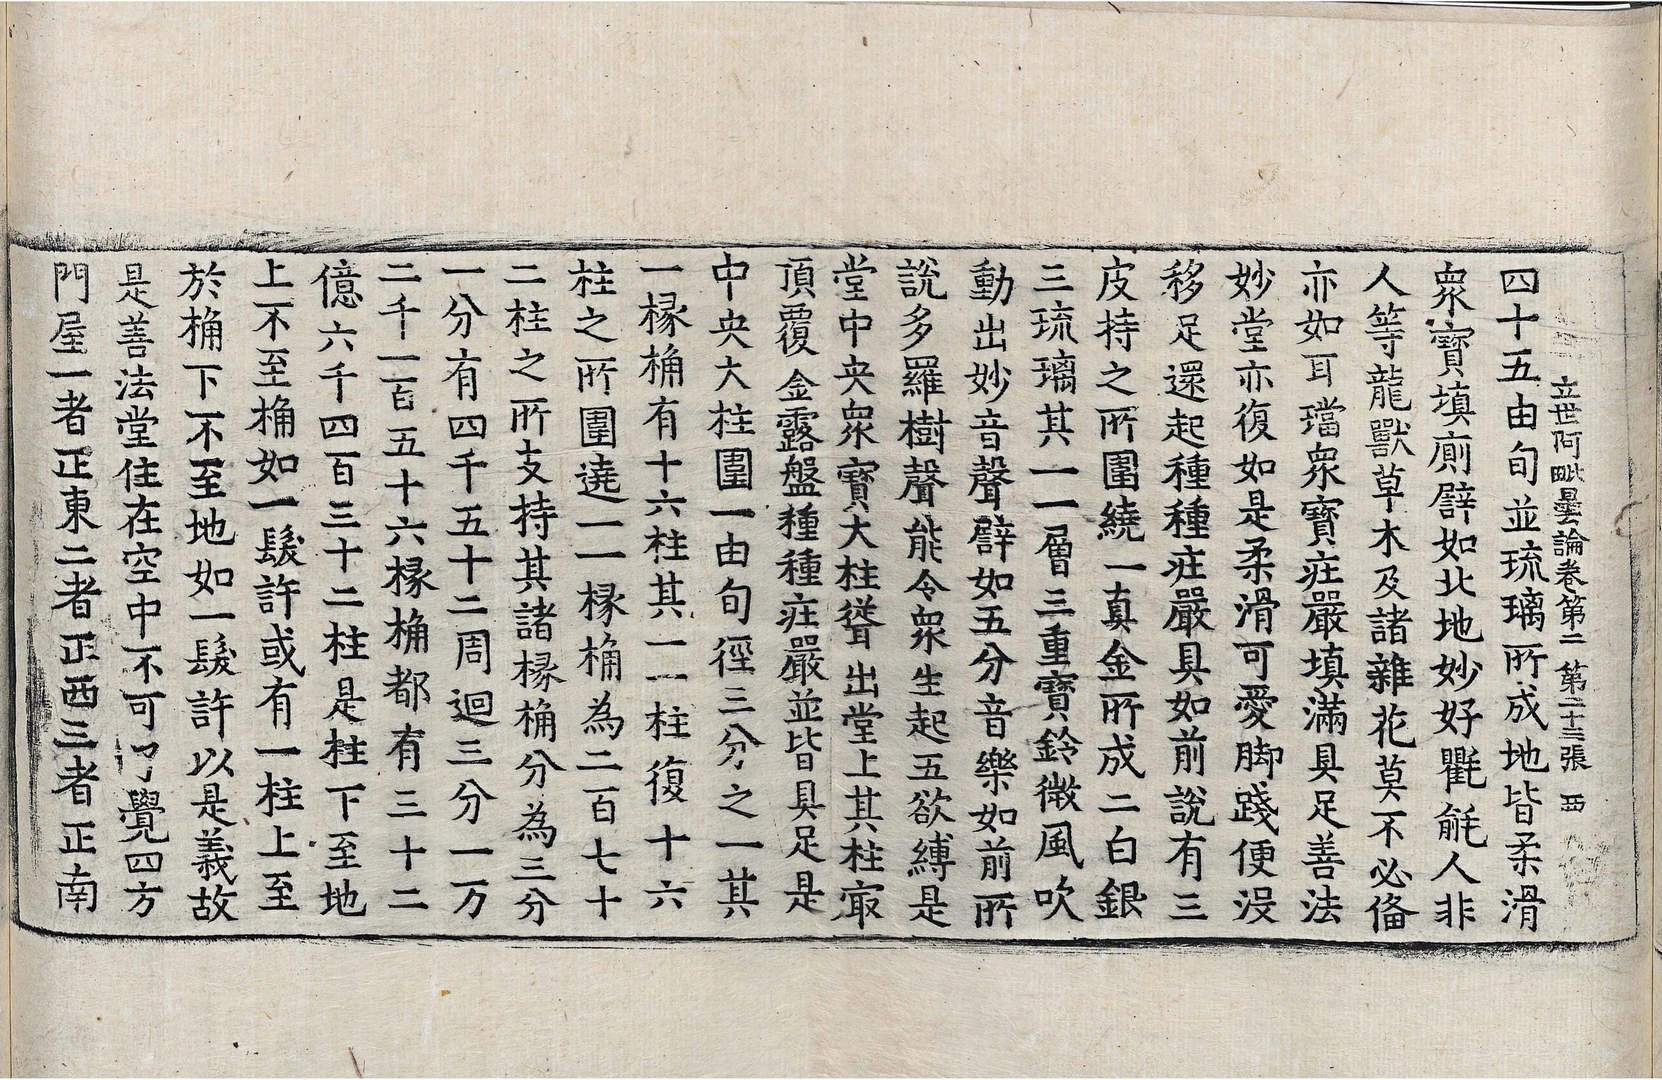 立世阿毗曇論卷第二 第二十三張 西
四十五由旬並琉璃所成地皆柔滑
衆寶填廁譬如北地妙好氍毹人非
人等龍獸草木及諸雜花莫不必俻
亦如耳璫衆寶疘嚴填滿具足善法
妙堂亦復如是柔滑可愛脚踐便沒
移足還起種種疘嚴具如前說有三
皮持之所圍繞一真金所成二白銀
三琉璃其一一層三重寶鈴微風吹
動出妙音聲譬如五分音樂如前所
說多羅樹聲能令衆生起五欲縛是
堂中央衆寶大柱聳出堂上其柱㝡
頂覆金露盤種種疘嚴並皆具足是
中央大柱圍一由旬徑三分之一其
一椽桷有十六柱其一一柱復十六
柱之所圍遶一一椽桷為二百七十
二柱之所支持其諸椽桷分為三分
一分有四千五十二周迴三分一万
二千一百五十六椽桷都有三十二
億六千四百三十二柱是柱下至地
上不至桷如一髮許或有一柱上至
於桷下不至地如一髮許以是義故
是善法堂住在空中不可了覺四方
門屋一者正東二者正西三者正南